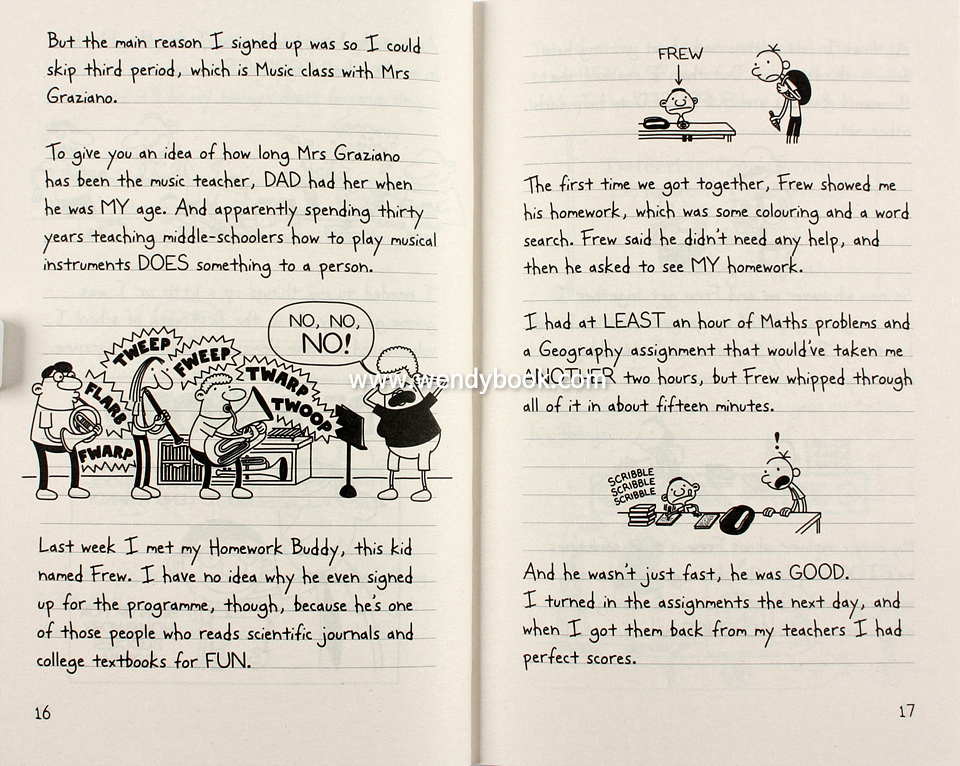 But the main reason I signed up was so I could
skip third period, which is Music class with Mrs
Graziano.
To give you an idea of how long Mrs Graziano
has been the music teacher, DAD had her when
he was MY age. And apparently spending thirty
years teaching middle-schoolers how to play musical
instruments DOES something to a person.
NO, NO,
NO!
TWEEP
FWEEP
TWARP
TWOOP
FLARB
FWARP
Last week I met my Homework Buddy, this kid
named Frew. I have no idea why he even signed
up for the programme, though, because he's one
of those people who reads scientific journals and
college textbooks for FUN.
16
FREW
The first time we got together, Frew showed me
his homework, which was some colouring and a word
search. Frew said he didn't need any help, and
then he asked to see MY homework.
I had at LEAST an hour of Maths problems and
a Geography assignment that would've taken me
ANOTHER two hours, but Frew whipped through
all of it in about fifteen minutes.
!
SCRIBBLE
SCRIBBLE
SCRIBBLE
And he wasn't just fast, he was GOOD.
I turned in the assignments the next day, and
when I got them back from my teachers I had
perfect scores.
17
www.wendybook.com